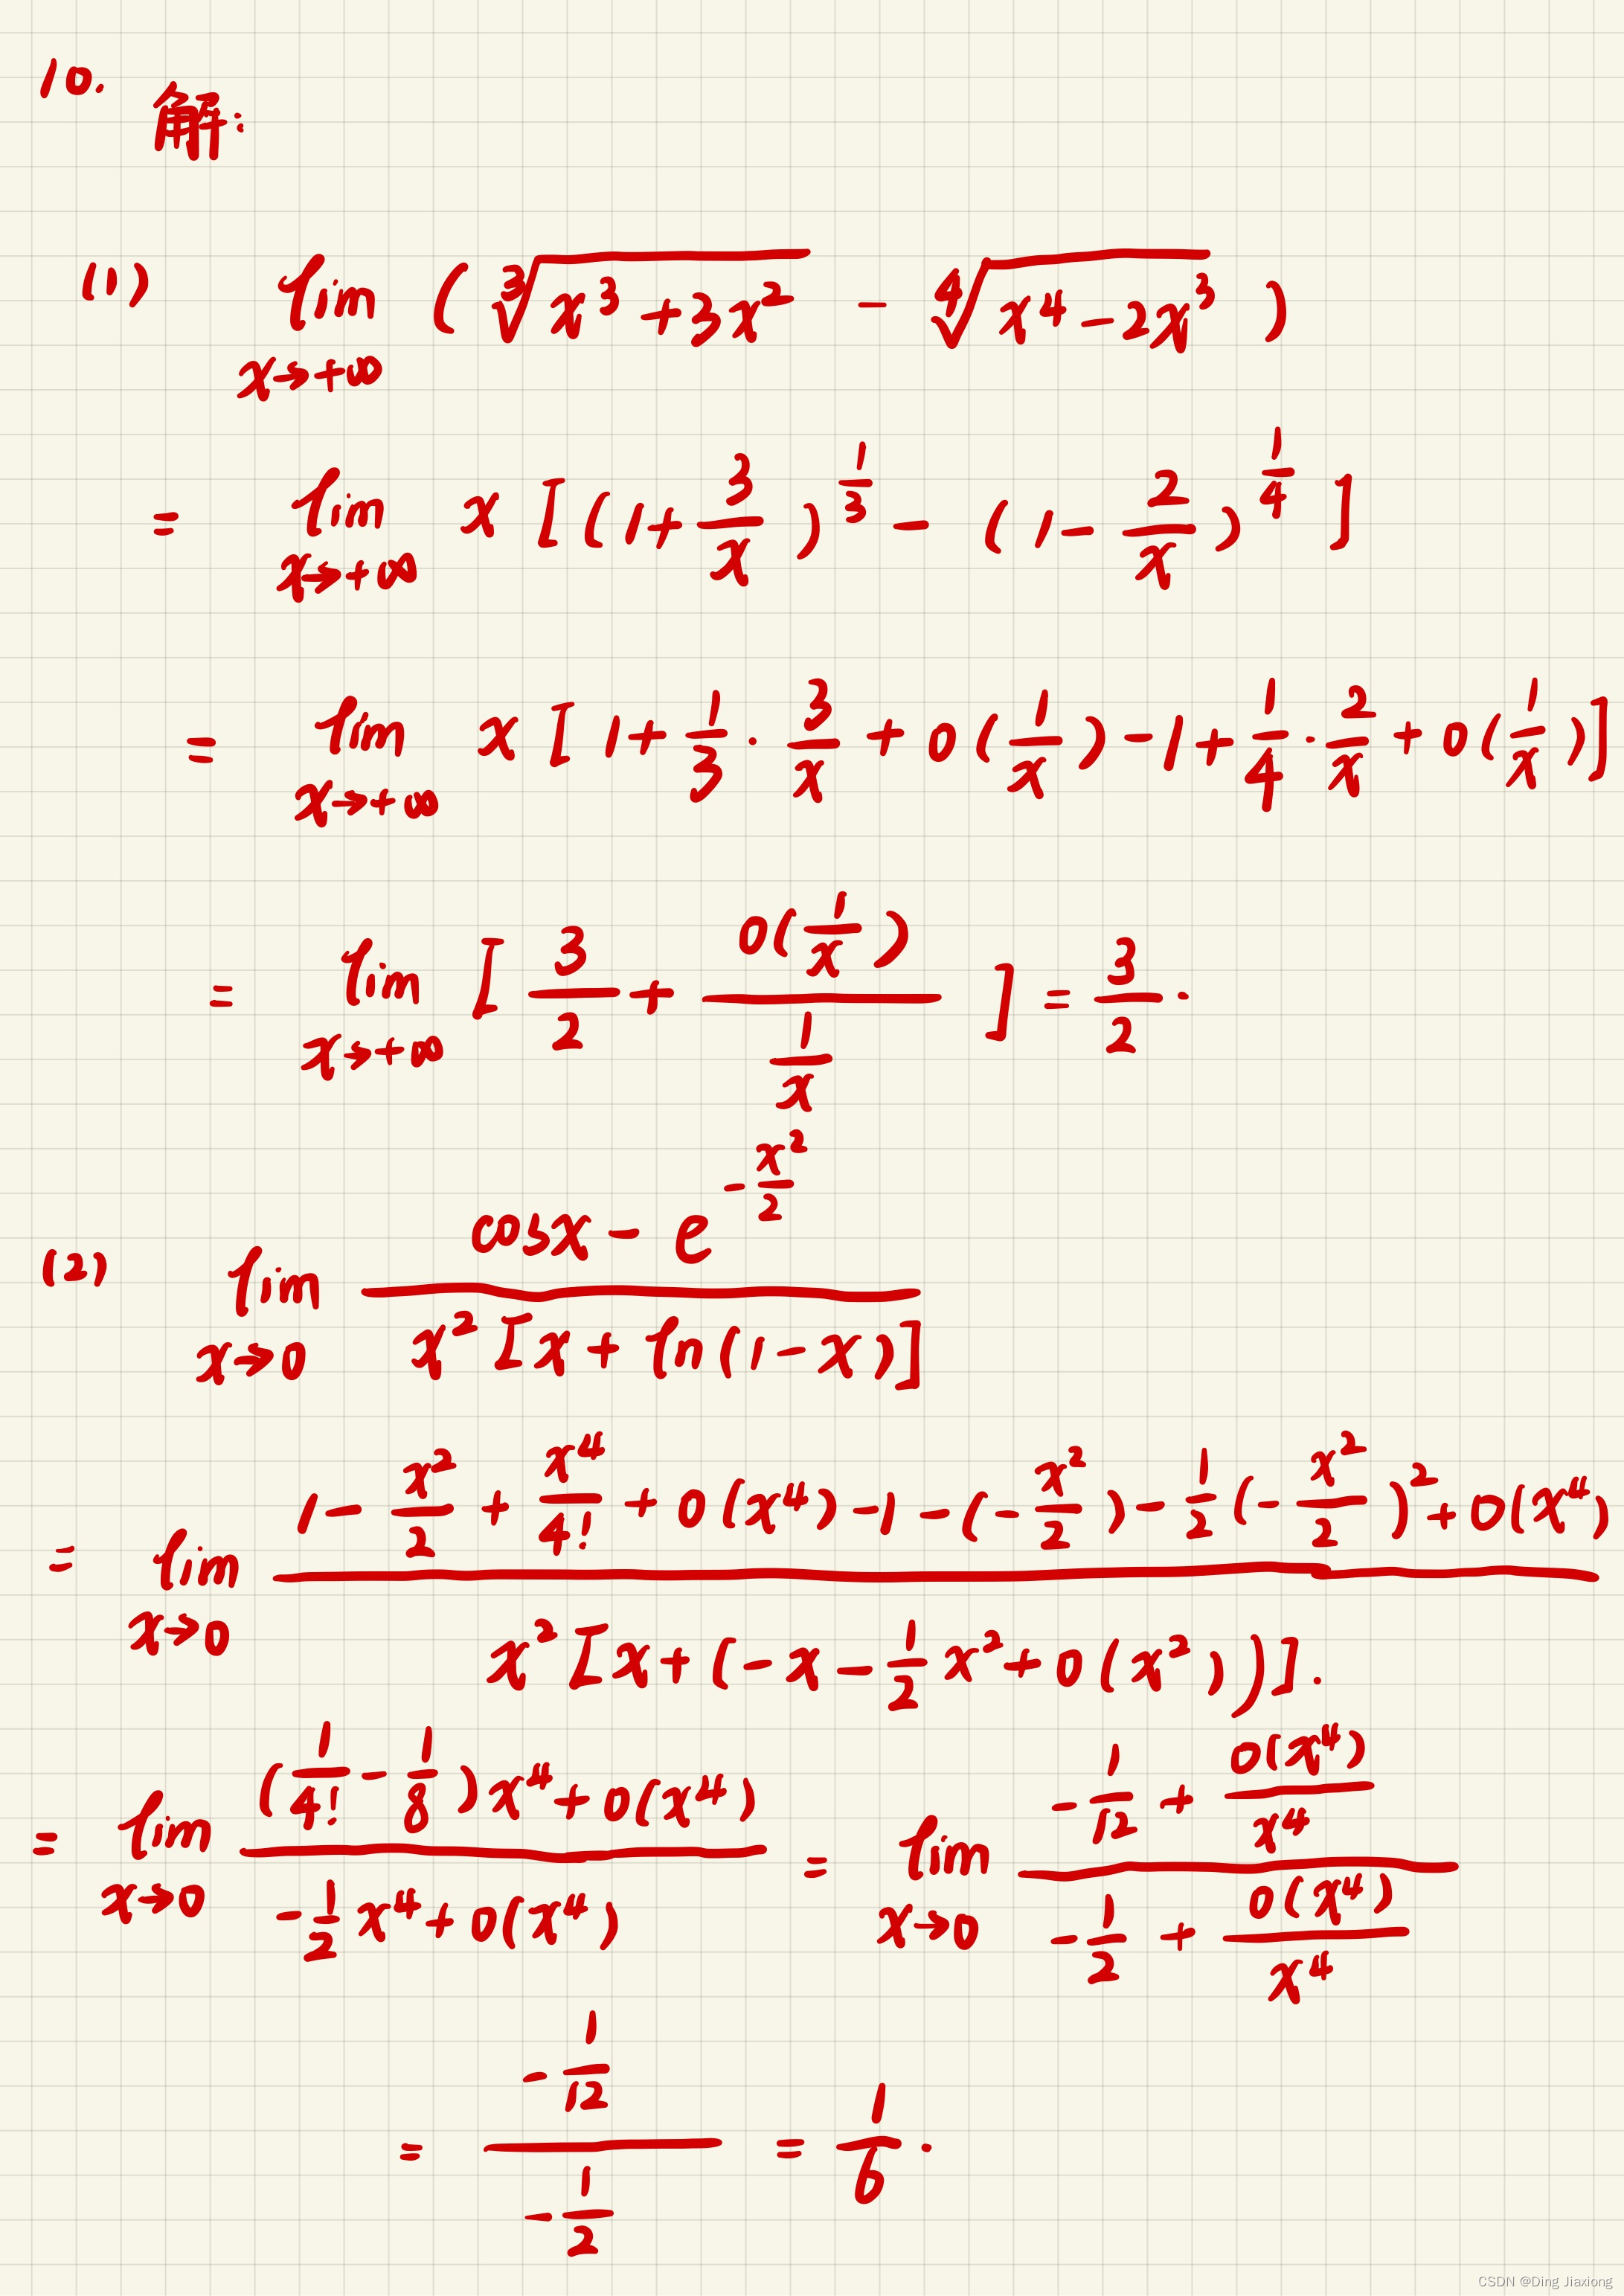 10.
解:
(1) lim_{x→+∞} ( ∛(x³+3x²) - ∜(x⁴-2x³) )
= lim_{x→+∞} x [ (1+3/x)^{1/3} - (1-2/x)^{1/4} ]
= lim_{x→+∞} x [ 1+1/3·3/x+o(1/x)-1+1/4·2/x+o(1/x) ]
= lim_{x→+∞} [ 3/2 + o(1/x)/(1/x) ] = 3/2.
(2) lim_{x→0} (cosx - e^{-x²/2})/(x²[x+ln(1-x)])
= lim_{x→0} (1-x²/2+x⁴/4!+o(x⁴)-1-(-x²/2)-1/2(-x²/2)²+o(x⁴))/(x²[x+(-x-1/2x²+o(x²))]).
= lim_{x→0} ((1/4!-1/8)x⁴+o(x⁴))/(-1/2x⁴+o(x⁴)) = lim_{x→0} (-1/12+o(x⁴)/x⁴)/(-1/2+o(x⁴)/x⁴)
= (-1/12)/(-1/2) = 1/6.
CSDN @Ding Jiaxiong